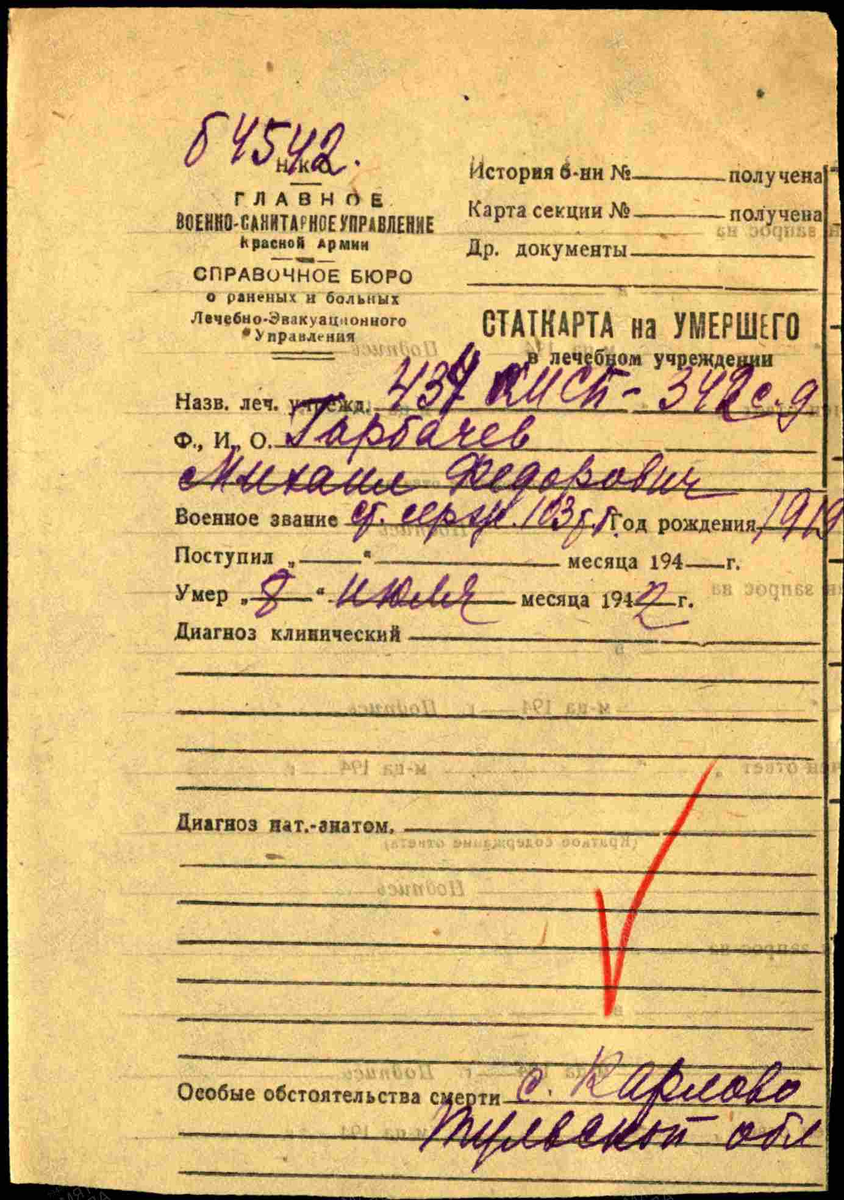 64542.
Н.К.О.
ГЛАВНОЕ
ВОЕННО-САНИТАРНОЕ УПРАВЛЕНИЕ
Красной Армии
СПРАВОЧНОЕ БЮРО
о раненых и больных
Лечебно-Эвакуационного
Управления
История б-ни № получена
Карта секции № получена
Др. документы
СТАТКАРТА на УМЕРШЕГО
в лечебном учреждении
Назв. леч. учрежд. 437 - 342 с.д
Ф., И., О. Гарбачев
Михаил Федорович
Военное звание ст. серж. Год рождения 1919
Поступил „ “ месяца 194 г.
Умер „8“ июля месяца 1942 г.
Диагноз клинический
Диагноз пат.-анатом.
Особые обстоятельства смерти с. Карлово
Тульской обл